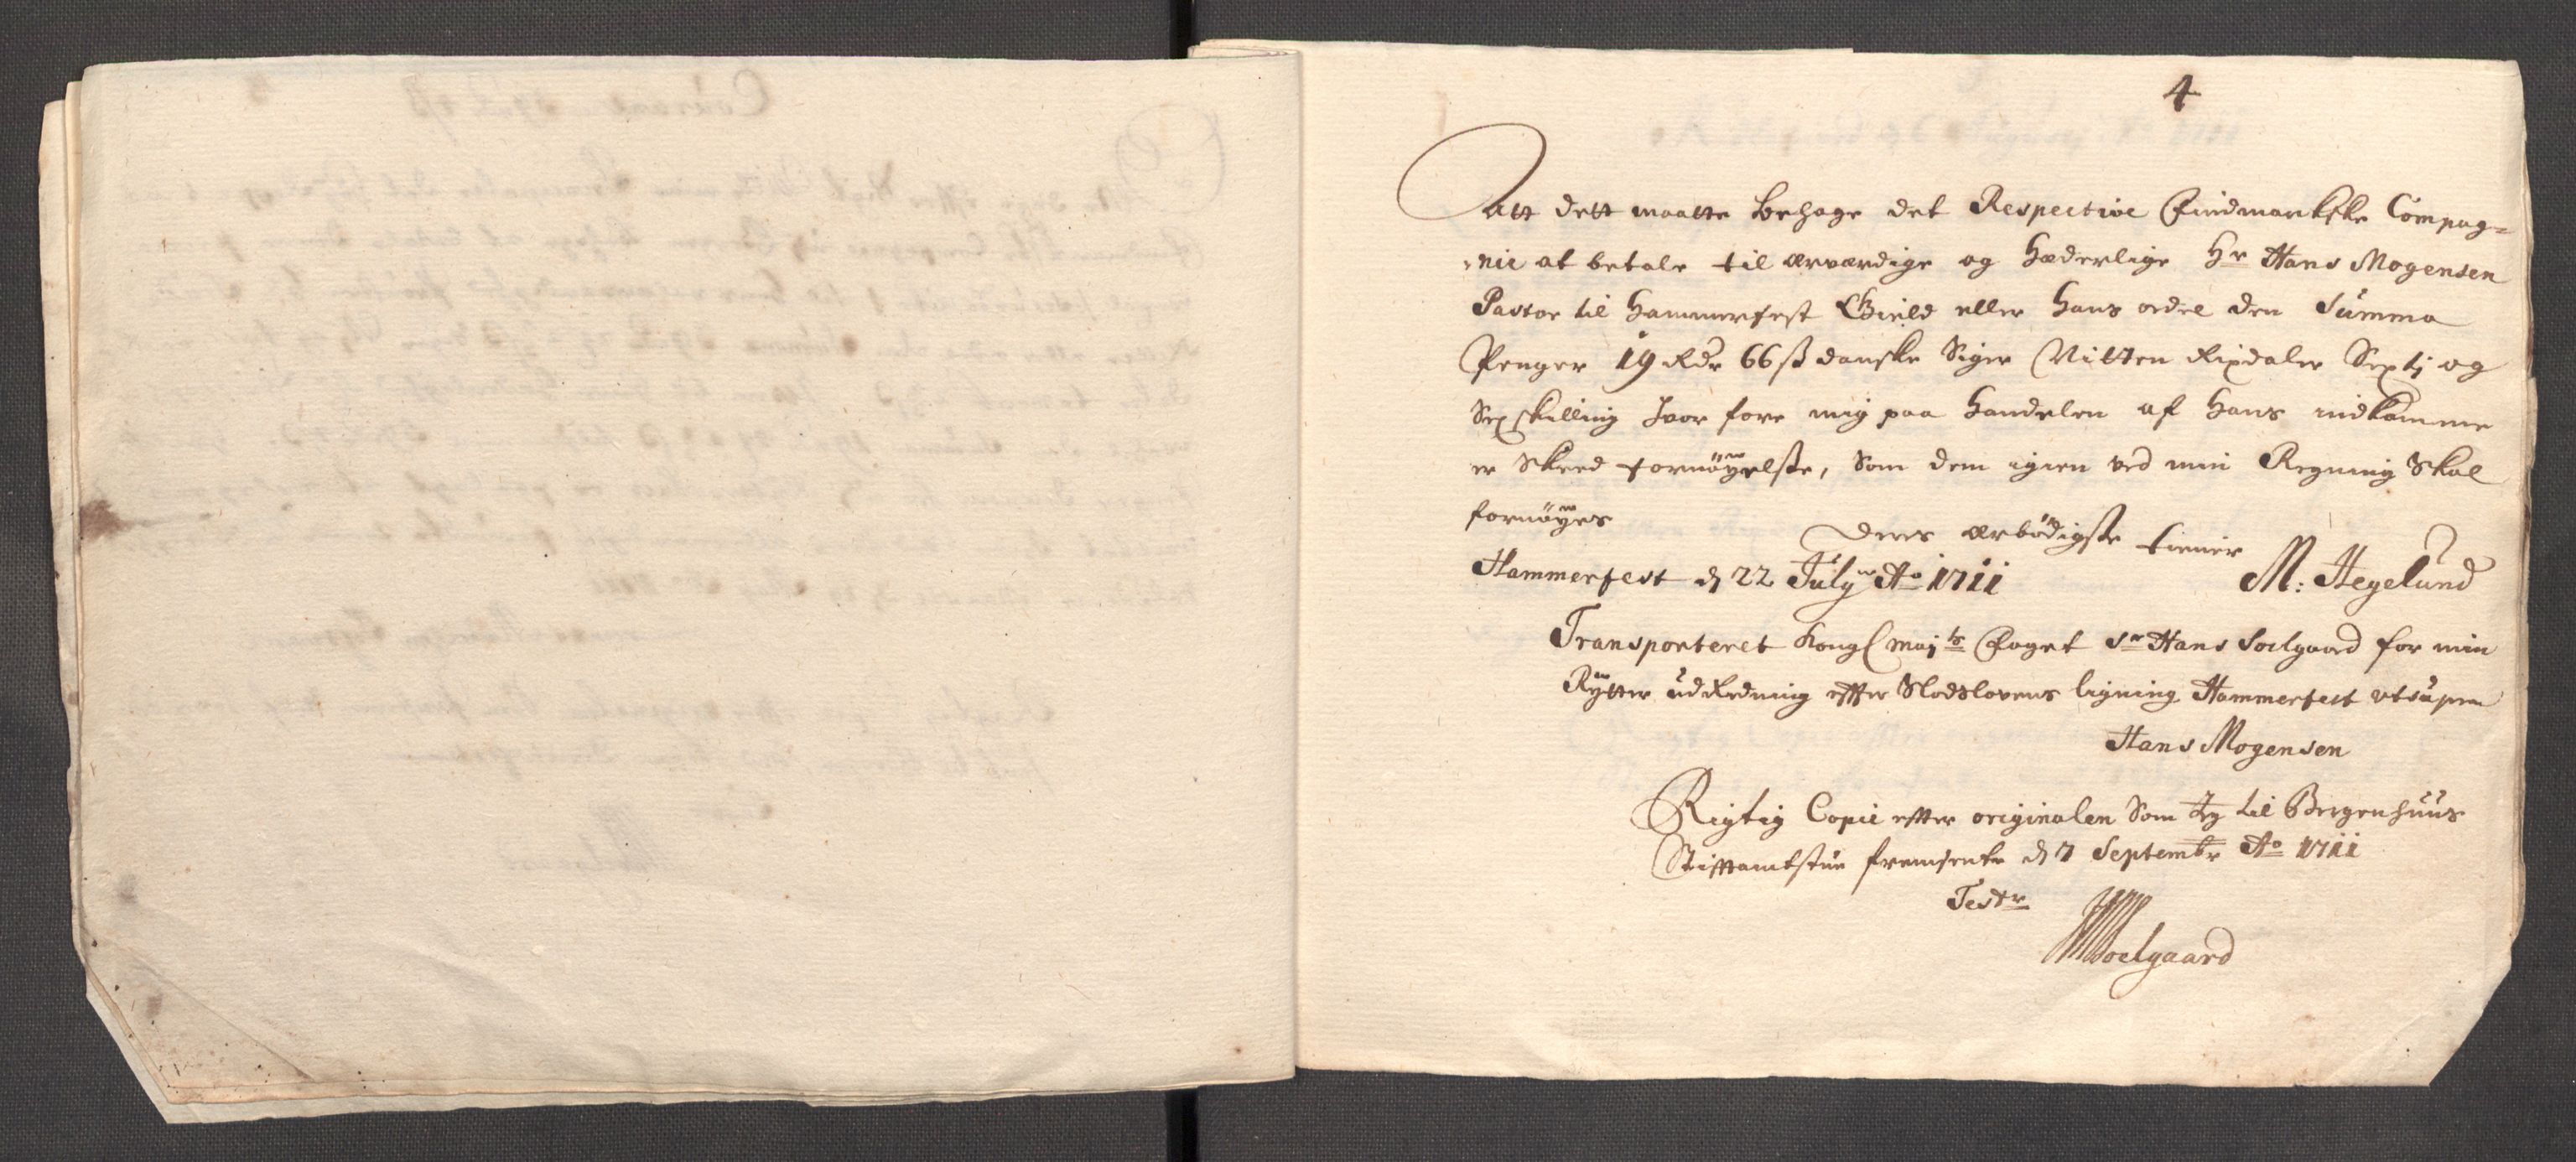 4
Att dett maatte behage det Respective Findmarkske Compag=
=nie at betale til ærværdige og hæderlige Hr Hans Mogensen
Pastor til Hammerfest Gield eller hans ordre den Summa
Penger 19 Rdr 66 ß danske Siger Nitten Rixdaler Sexti og
Sex skilling hvor fore mig paa handelen af hans indkomme
er skeed fornøyelse, som dem igien ved min Regning skal
fornøyes
Deres ærbødigste tiener
Hammerfest d 22 July Ao 1711 M: Hegelund
Transporteret Kongl Majts Foget Sr Hans Soelgaard for min
Rytter udredning efter Slodslovens ligning Hammerfest utsupra
Hans Mogensen
Rigtig Copie efter originalen som Jeg til Bergenhuus
Stiftamtstue fremsente d 7 Septembr Ao 1711
Testr
HSoelgaard